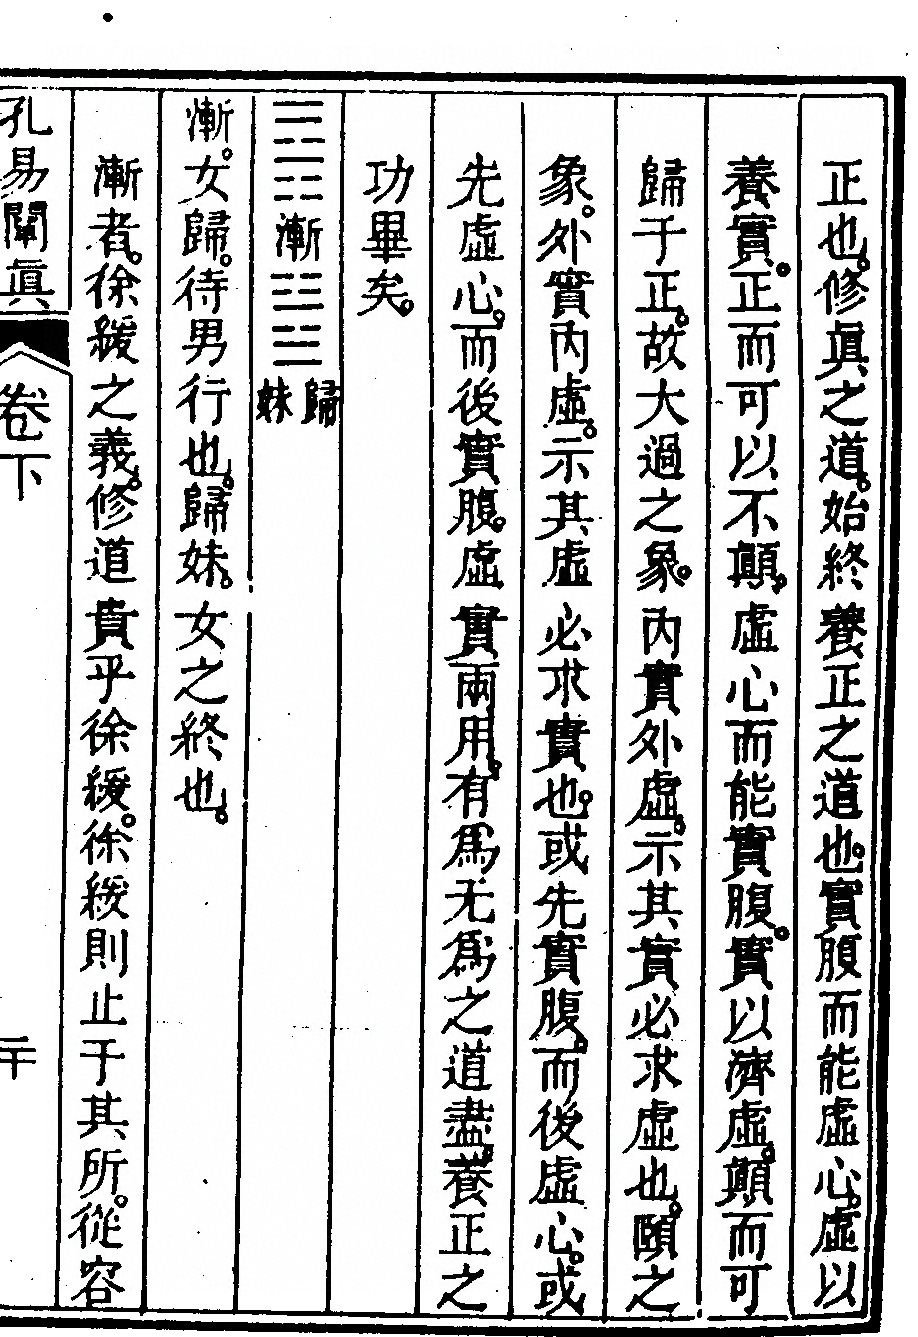 正也。修眞之道。始終養正之道也。實腹而能虛心。虛以
養實。正而可以不顚。虛心而能實腹。實以濟虛。顚而可
歸于正。故大過之象。內實外虛。示其實必求虛也。頤之
象。外實內虛。示其虛必求實也。或先實腹。而後虛心。或
先虛心。而後實腹。虛實兩用。有爲无爲之道盡。養正之
功畢矣。
䷴漸䷵歸妹
漸。女歸。待男行也。歸妹。女之終也。
漸者。徐緩之義。修道貴乎徐緩。徐緩則止于其所。從容
孔易闡眞 卷下 二十